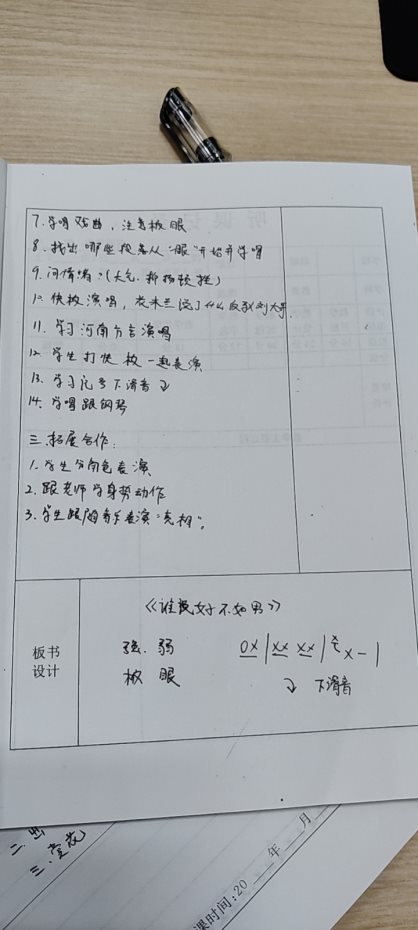 7. 学唱戏曲，注意板眼
8. 找出哪些披者从“眼”开始并学唱
9. 问情绪？(大气、抑扬顿挫)
10 快板演唱，花木兰说了什么反驳刘大哥.
11. 学习河南方言演唱
12. 学生打快板一起表演
13. 学习记号下滑音
14. 学唱跟钢琴
三. 拓展合作:
1. 学生分角色表演
2. 跟老师学身势动作
3. 学生跟随音乐表演“亮相”。
板书
设计
《谁说女子不如男》
强. 弱 0x | xx xx | x x - |
板 眼 下滑音
二.
三. 赏花
课时间: 20 年 月